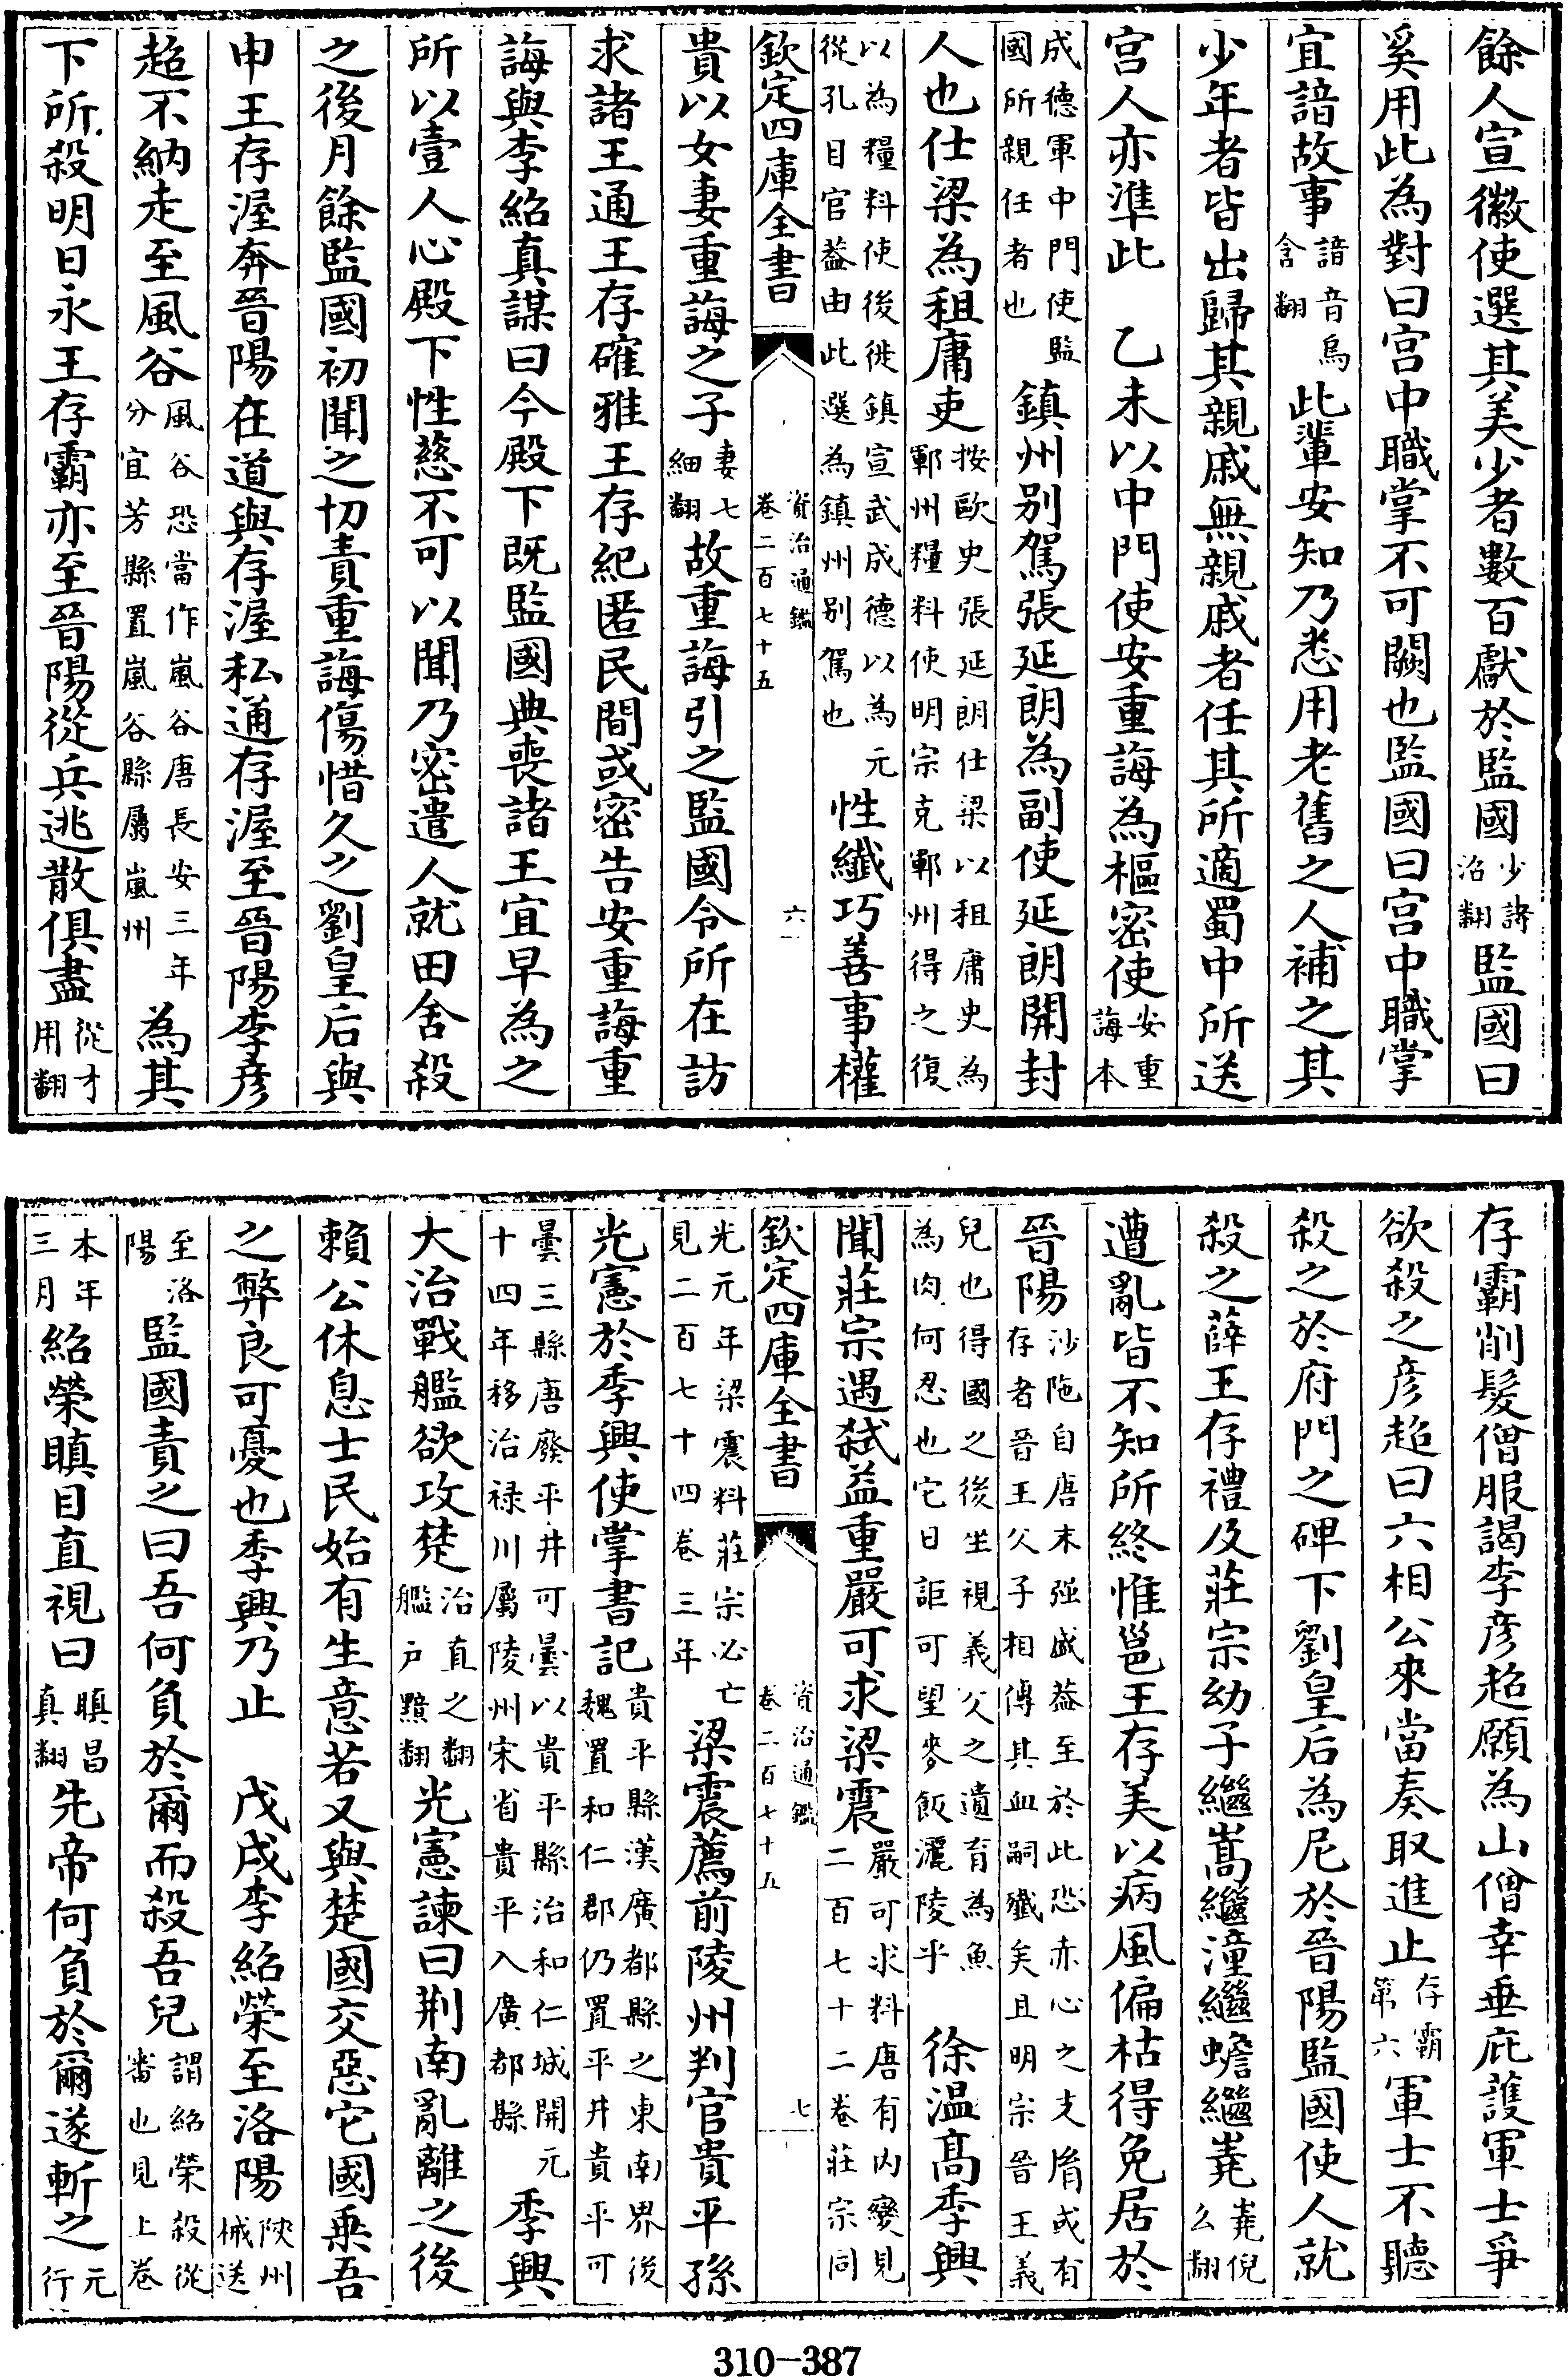 餘人宣徽使選其美少者數百獻於監國少詩沼翻監國曰
奚用此為對曰宫中職掌不可闕也監國曰宫中職掌
宜諳故事諳音烏含翻此輩安知乃悉用老舊之人補之其
少年者皆出歸其親戚無親戚者任其所適蜀中所送
宫人亦準此　乙未以中門使安重誨為樞密使安重誨本
成德軍中門使監國所親任者也鎮州别駕張延朗為副使延朗開封
人也仕梁為租庸吏按歐史張延朗仕梁以租庸史為鄆州糧料使明宗克鄆州得之復
以為糧料使後徙鎮宣武成德以為元從孔目官葢由此選為鎮州别駕也性纎巧善事權
欽定四庫全書　資治通鑑卷二百七十五　六
貴以女妻重誨之子妻七細翻故重誨引之監國令所在訪
求諸王通王存確雅王存紀匿民間或密告安重誨重
誨與李紹真謀曰今殿下既監國典喪諸王宜早為之
所以壹人心殿下性慈不可以聞乃密遣人就田舍殺
之後月餘監國初聞之切責重誨傷惜久之劉皇后與
申王存渥奔晉陽在道與存渥私通存渥至晉陽李彦
超不納走至風谷風谷恐當作嵐谷唐長安三年分宜芳縣置嵐谷縣屬嵐州為其
下所殺明日永王存霸亦至晉陽從兵逃散俱盡從才用翻
存霸削髮僧服謁李彦超願為山僧幸垂庇䕶軍士爭
欲殺之彦超曰六相公來當奏取進止存霸第六軍士不聽
殺之於府門之碑下劉皇后為尼於晉陽監國使人就
殺之薛王存禮及莊宗幼子繼嵩繼潼繼蟾繼嶤嶤倪么翻
遭亂皆不知所終惟邕王存美以病風偏枯得免居於
晉陽沙陁自唐末强盛葢至於此恐赤心之支屑或有存者晉王父子相傳其血嗣殱矣且明宗晉王義
兒也得國之後坐視義父之遺育為魚為肉何忍也它日詎可望麥飯灑陵乎　徐温高季興
聞莊宗遇弑益重嚴可求梁震嚴可求料唐有内變見二百七十二卷莊宗同
欽定四庫全書　資治通鑑卷二百七十五　七
光元年梁震料莊宗必亡見二百七十四卷三年梁震薦前陵州判官貴平孫
光憲於季興使掌書記貴平縣漢廣都縣之東南界後魏置和仁郡仍置平井貴平可
曇三縣唐廢平井可曇以貴平縣治和仁城開元十四年移治禄川屬陵州宋省貴平入廣都縣季興
大治戰艦欲攻楚治直之翻艦户黯翻光憲諫曰荆南亂離之後
賴公休息士民始有生意若又與楚國交惡它國乗吾
之弊良可憂也季興乃止　戊戌李紹榮至洛陽陜州械送
至洛陽監國責之曰吾何負於爾而殺吾兒謂紹榮殺從審也見上卷
本年三月紹榮瞋目直視曰瞋昌真翻先帝何負於爾遂斬之元行
310-387